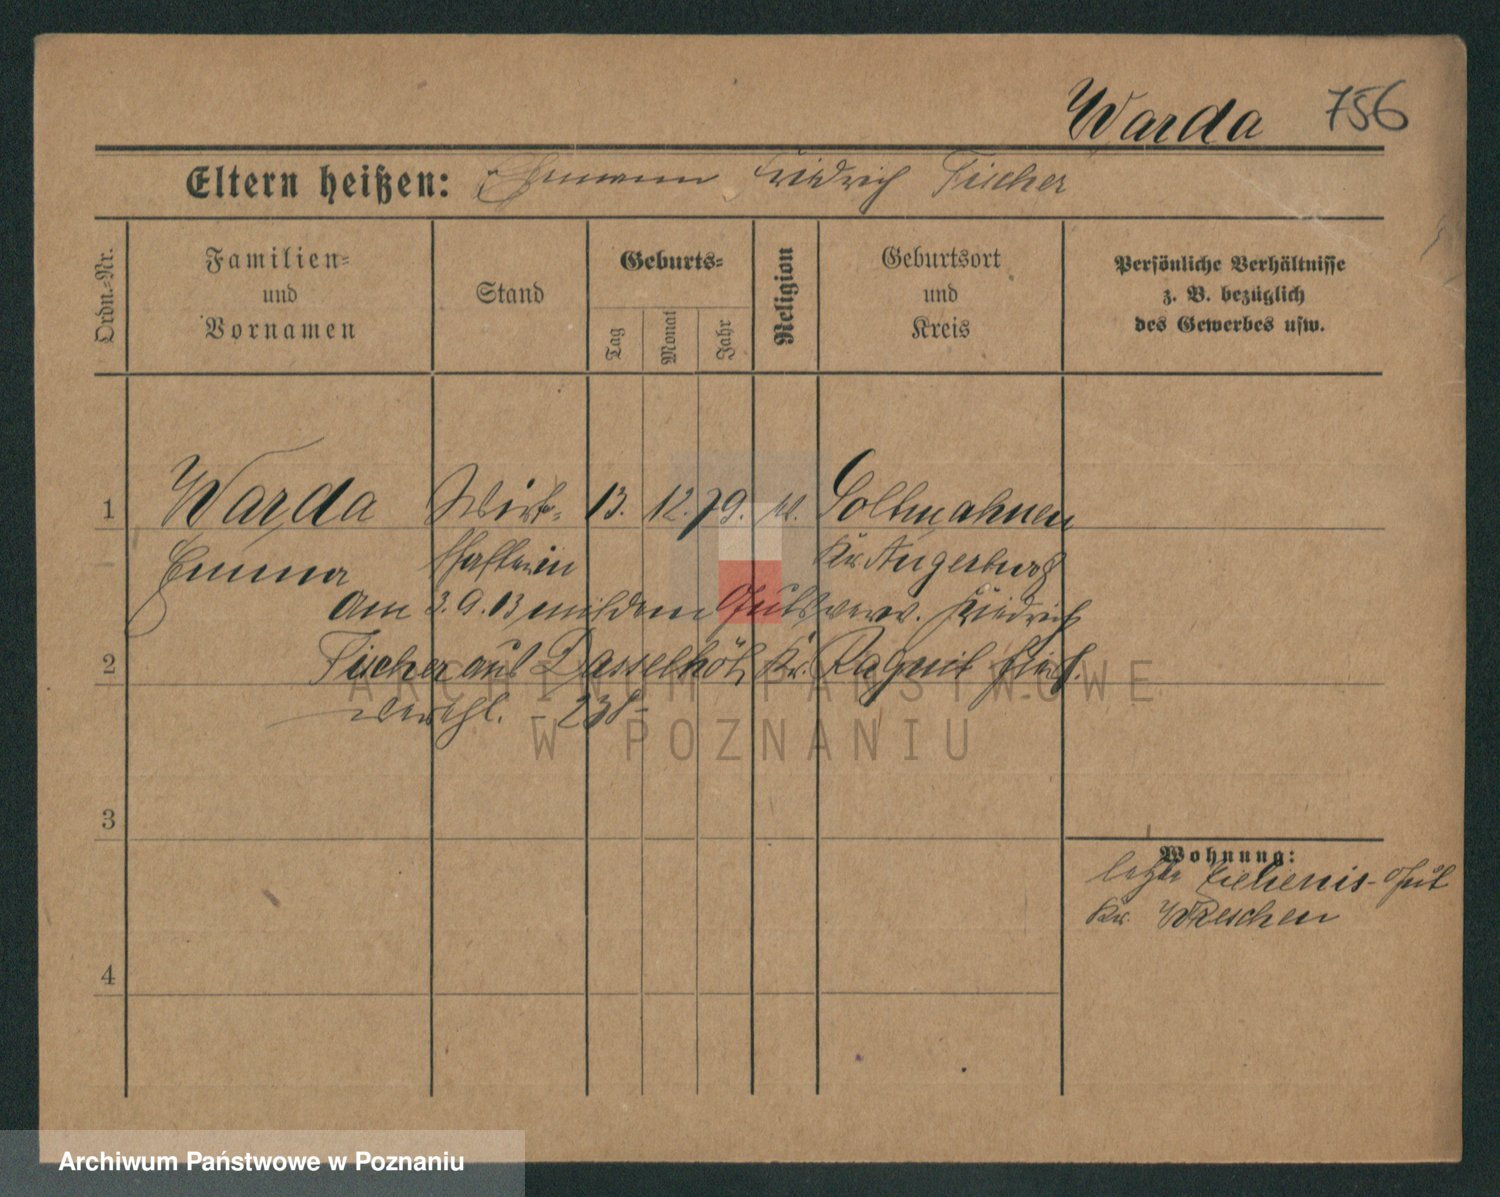 Warda 756
Eltern heißen: Ehemann Friedrich Fischer
Ordn.-Nr.
Familien-
und
Vornamen
Stand
Geburts-
Tag
Monat
Jahr
Religion
Geburtsort
und
Kreis
Persönliche Verhältnisse
z. B. bezüglich
des Gewerbes usw.
1 Warda Wirt- 13. 12. 79. Soltmahnen
Emma schafterin Kr. Angerburg
Am 3.9.13 mit dem Gutsverw. Friedrich
2 Fischer aus Kr. Ragnit
verehl. - 238-
ARCHIWUM PAŃSTWOWE
W POZNANIU
3
Wohnung:
letzte -Gut
Kr. Wreschen
4
Archiwum Państwowe w Poznaniu